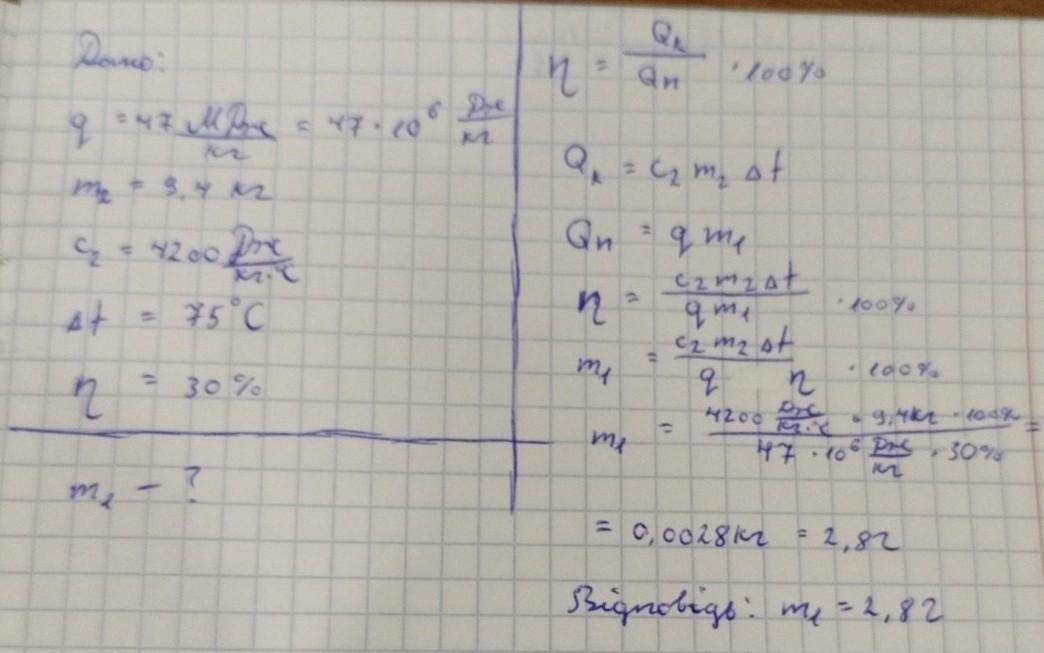 Дано:
q = 47 МДж/кг = 47 · 10⁶ Дж/кг
m₂ = 9,4 кг
c₂ = 4200 Дж/кг·°С
Δt = 75°C
η = 30%
m₁ - ?
η = Qк/Qп · 100%
Qк = c₂ m₂ Δt
Qп = q m₁
η = c₂ m₂ Δt/q m₁ · 100%
m₁ = c₂ m₂ Δt/q η · 100%
m₁ = 4200 Дж/кг·°С · 9,4кг · 100%/47 · 10⁶ Дж/кг · 30% =
= 0,0028кг = 2,8г
Відповідь: m₁ = 2,8г